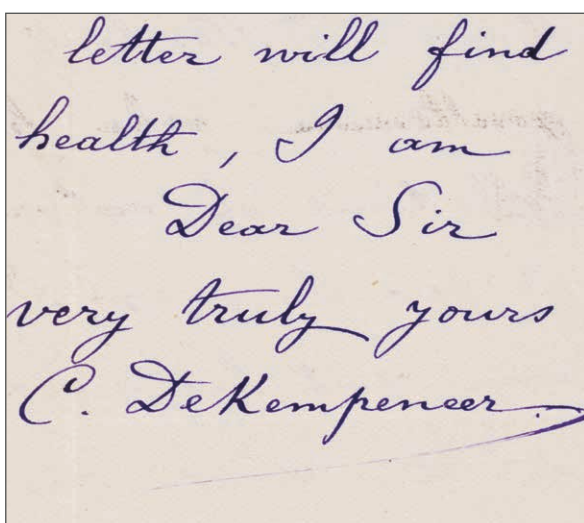 letter will find
health, I am
Dear Sir
very truly yours
C. DeKempeneer.